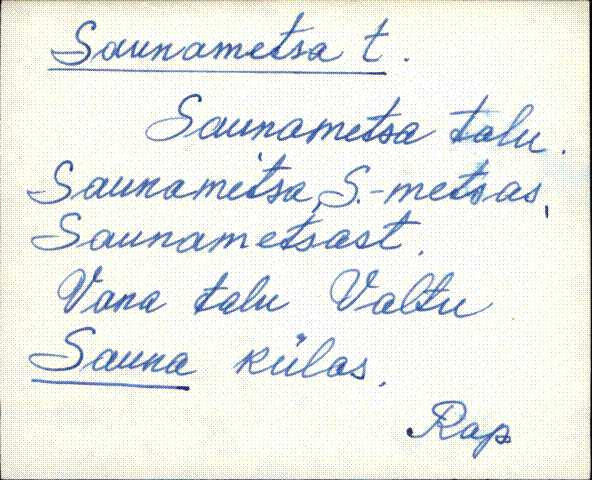 Saunametsa t.
Saunametsa talu.
Saunametsa, S.-metsas,
Saunametsast.
Vana talu Valtu
Sauna külas.
Rap